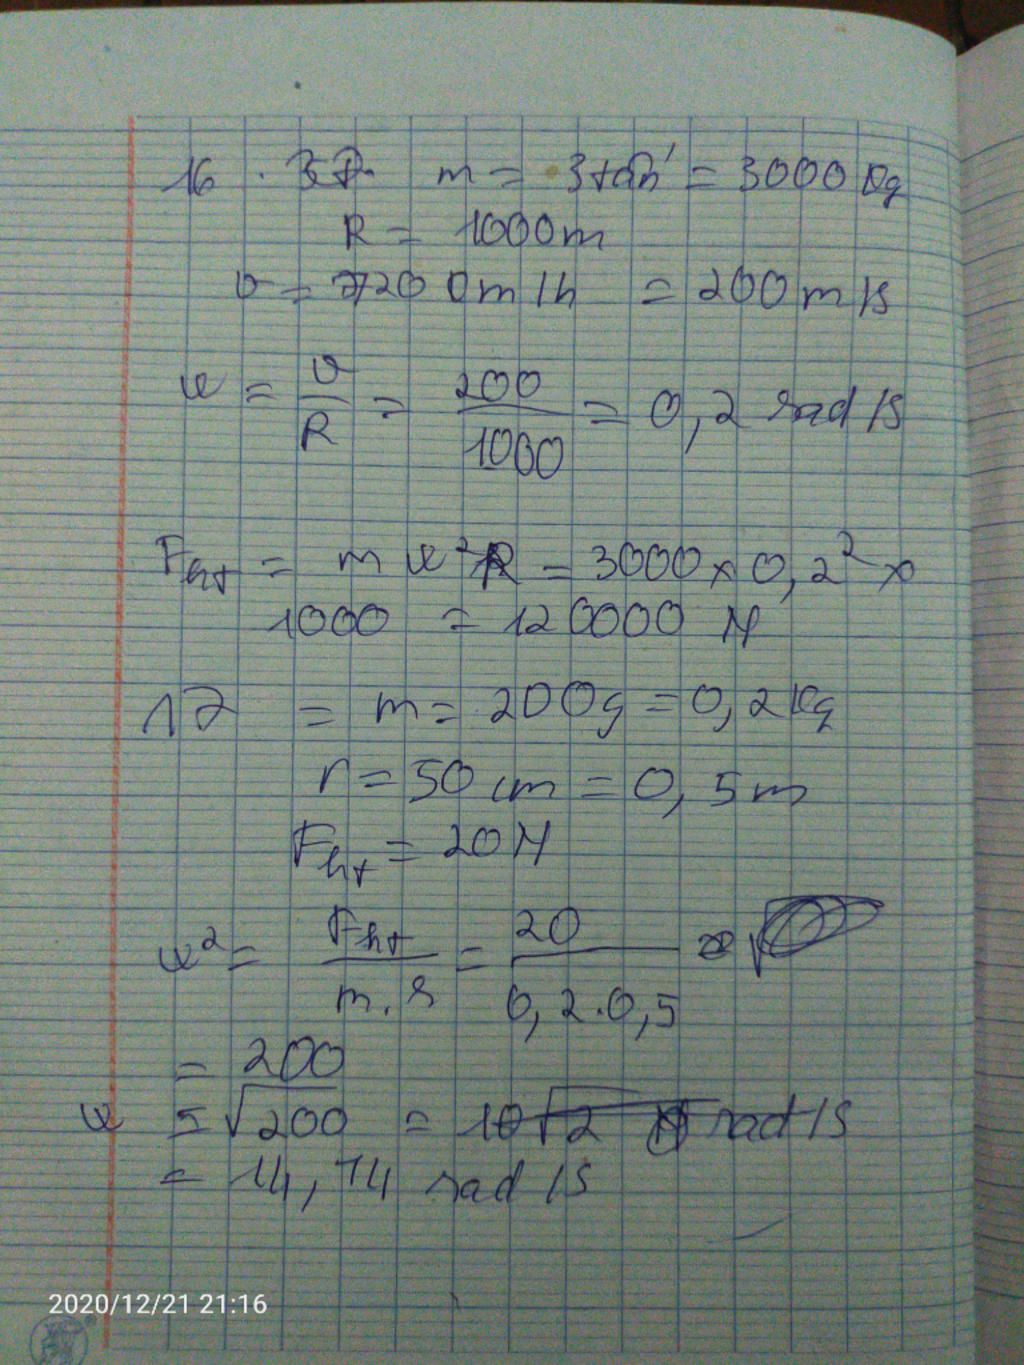 16 . m = 3 tấn = 3000 kg
R = 1000m
v = 7200m/h = 200m/s
ω = v/R = 200/1000 = 0,2 rad/s
Fht = m ω²R = 3000 x 0,2² x
1000 = 120000 N
17 = m = 200g = 0,2kg
r = 50 cm = 0,5m
Fht = 20N
ω² = Fht/m.r = 20/0,2.0,5
= 200
ω = √200 = 10√2 rad/s
= 14,14 rad/s
2020/12/21 21:16